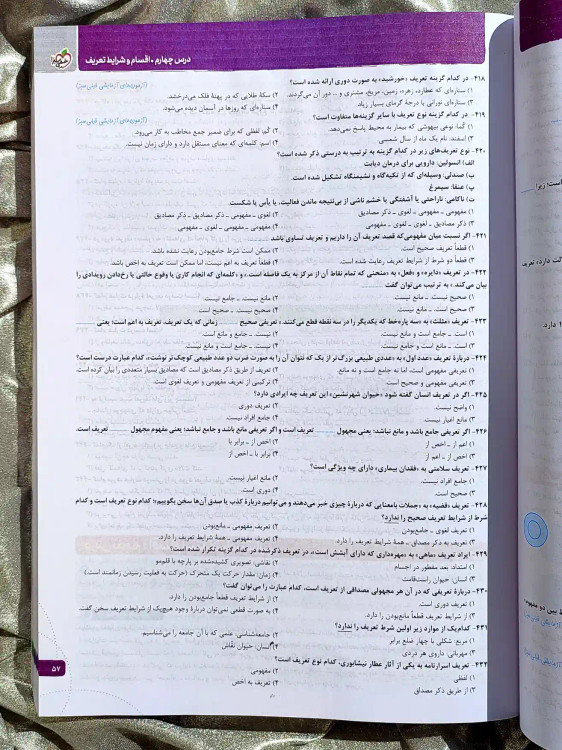 درس چهارم • اقسام و شرایط تعریف
۴۱۸- در کدام گزینه تعریف «خورشید» به صورت دوری ارائه شده است؟
(آزمون‌های آزمایشی خیلی سبز)
۱) ستاره‌ای که عطارد، زهره، زمین، مریخ، مشتری و .. دور آن می‌گردند.
۲) سکهٔ طلایی که در پهنهٔ فلک می‌درخشد.
۳) ستاره‌ای نورانی با درجهٔ گرمای بسیار زیاد
۴) ستاره‌ای که روزها در آسمان دیده می‌شود.
۴۱۹- در کدام گزینه نوع تعریف با سایر گزینه‌ها متفاوت است؟
(آزمون‌های آزمایشی خیلی سبز)
۱) کُما، نوعی بیهوشی که بیمار به محیط پاسخ نمی‌دهد.
۲) کُم، لفظی که برای ضمیر جمع مخاطب به کار می‌رود.
۳) اسفند، نام یک ماه از سال شمسی
۴) اسم، کلمه‌ای که معنای مستقل دارد و دارای زمان نیست.
۴۲۰- نوع تعریف‌های زیر در کدام گزینه به ترتیب به درستی ذکر شده است؟
الف) انسولین: دارویی برای درمان دیابت
ب) صندلی: وسیله‌ای که از تکیه‌گاه و نشیمنگاه تشکیل شده است.
پ) عنقا: سیمرغ
ت) ناکامی: ناراحتی یا آشفتگی یا خشم ناشی از بی‌نتیجه ماندن فعالیت، یا یأس یا شکست.
۱) مفهومی ـ مفهومی ـ لغوی ـ ذکر مصادیق
۲) لغوی ـ مفهومی ـ ذکر مصادیق ـ ذکر مصادیق
۳) ذکر مصادیق ـ لغوی ـ لغوی ـ مفهومی
۴) مفهومی ـ مفهومی ـ لغوی ـ مفهومی
۴۲۱- اگر نسبت میان مفهومی‌که قصد تعریف آن را داریم و تعریف تساوی باشد
۱) قطعاً تعریف صحیح است.
۲) ممکن است شرط جامع‌بودن رعایت نشده باشد.
۳) قطعاً دو شرط از شرایط تعریف رعایت شده است.
۴) قطعاً تعریف به اعم نیست، اما ممکن است تعریف به اخص باشد.
۴۲۲- در تعریف «دایره» و «فعل» به «منحنی که تمام نقاط آن از مرکز به یک فاصله است.» و «کلمه‌ای که انجام کاری یا وقوع حالتی یا رخ‌دادن رویدادی را
بیان می‌کند.» به ترتیب می‌توان گفت
۱) صحیح نیست ـ مانع نیست.
۲) مانع نیست ـ جامع نیست.
۳) صحیح است ـ مانع نیست.
۴) صحیح نیست ـ صحیح است.
۴۲۳- تعریف «مثلث» به «سه پاره‌خط که یکدیگر را در سه نقطه قطع می‌کنند.» تعریفی صحیح زمانی که یک تعریف، تعریف به اعم است؛ یعنی
۱) است ـ جامع است و مانع نیست.
۲) نیست ـ جامع و مانع است.
۳) است ـ مانع است و جامع نیست.
۴) نیست ـ جامع است و مانع نیست.
۴۲۴- دربارهٔ تعریف «عدد اول» به «عددی طبیعی بزرگ‌تر از یک که نتوان آن را به صورت ضرب دو عدد طبیعی کوچک‌تر نوشت»، کدام عبارت درست است؟
۱) تعریفی مفهومی است، اما نه جامع است و نه مانع.
۲) تعریف از طریق ذکر مصادیق است که مصادیق بسیار متعددی را بیان کرده است.
۳) تعریفی مفهومی و صحیح است.
۴) ترکیبی از تعریف مفهومی و تعریف لغوی است.
۴۲۵- اگر در تعریف انسان گفته شود «حیوان شهرنشین» این تعریف چه ایرادی دارد؟
۱) واضح نیست.
۲) تعریف دوری
۳) مانع اغیار نیست.
۴) جامع افراد نیست.
۴۲۶- اگر تعریفی جامع باشد و مانع نباشد؛ یعنی مجهول تعریف است و اگر تعریفی مانع باشد و جامع نباشد؛ یعنی مفهوم مجهول تعریف است.
۱) اعم از ـ اخص از
۲) اخص از ـ برابر با
۳) اخص از ـ اعم از
۴) برابر با ـ اخص از
۴۲۷- تعریف سلامتی به «فقدان بیماری» دارای چه ویژگی است؟
۱) جامع افراد نیست.
۲) مانع اغیار نیست.
۳) صحیح است.
۴) دوری است.
۴۲۸- تعریف «قضیه» به «جملات بامعنایی که دربارهٔ چیزی خبر می‌دهند و می‌توانیم دربارهٔ کذب یا صدق آن‌ها سخن بگوییم»؛ کدام نوع تعریف است و کدام
شرط از شرایط تعریف صحیح را ندارد؟
۱) تعریف لغوی ـ جامع‌بودن
۲) تعریف مفهومی ـ مانع‌بودن
۳) تعریف به ذکر مصداق ـ همهٔ شرایط تعریف را دارد.
۴) تعریف مفهومی ـ همهٔ شرایط تعریف را دارد.
۴۲۹- ایراد تعریف «ماهی» به «مهره‌داری که دارای آبشش است»، در تعریف ذکرشده در کدام گزینه تکرار شده است؟
۱) امتداد: بعد مفطور در اجسام
۲) نقاشی: تصویری کشیده‌شده بر پارچه با قلم‌مو
۳) انسان: حیوان راست‌قامت
۴) زمان: مقدار حرکت یک متحرک (حرکت به فعلیت رسیدن زمانمند است.)
۴۳۰- دربارهٔ تعریفی که در آن هر مجهولی مصداقی از تعریف است، کدام عبارت را می‌توان گفت؟
۱) تعریف دوری است.
۲) از شرایط تعریف قطعاً جامع‌بودن را دارد.
۳) از شرایط تعریف قطعاً مانع‌بودن را دارد.
۴) به صورت قطعی نمی‌توان دربارهٔ وجود هیچ‌یک از شرایط تعریف سخن گفت.
۴۳۱- کدام‌یک از موارد زیر اولین شرط تعریف را ندارد؟
۱) مربع: شکلی با چهار ضلع برابر
۲) جامعه‌شناسی: علمی که با آن جامعه را می‌شناسیم.
۳) مهربانی: داروی هر دردی
۴) انسان: حیوان نقّاش
۴۳۲- تعریف اسرارنامه به یکی از آثار عطار نیشابوری، کدام نوع تعریف است؟
۱) لفظی
۲) مفهومی
۳) از طریق ذکر مصداق
۴) تعریف به اخص
۵۷